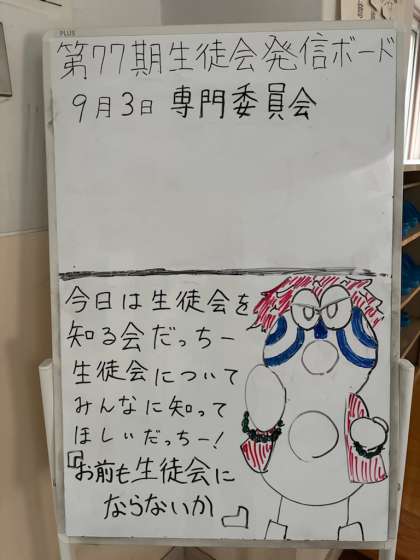 PLUS
第77期生徒会発信ボード
9月3日 専門委員会
今日は生徒会を
知る会だっちー
生徒会について
みんなに知って
ほしいだっちー!
『お前も生徒会に
ならないか』